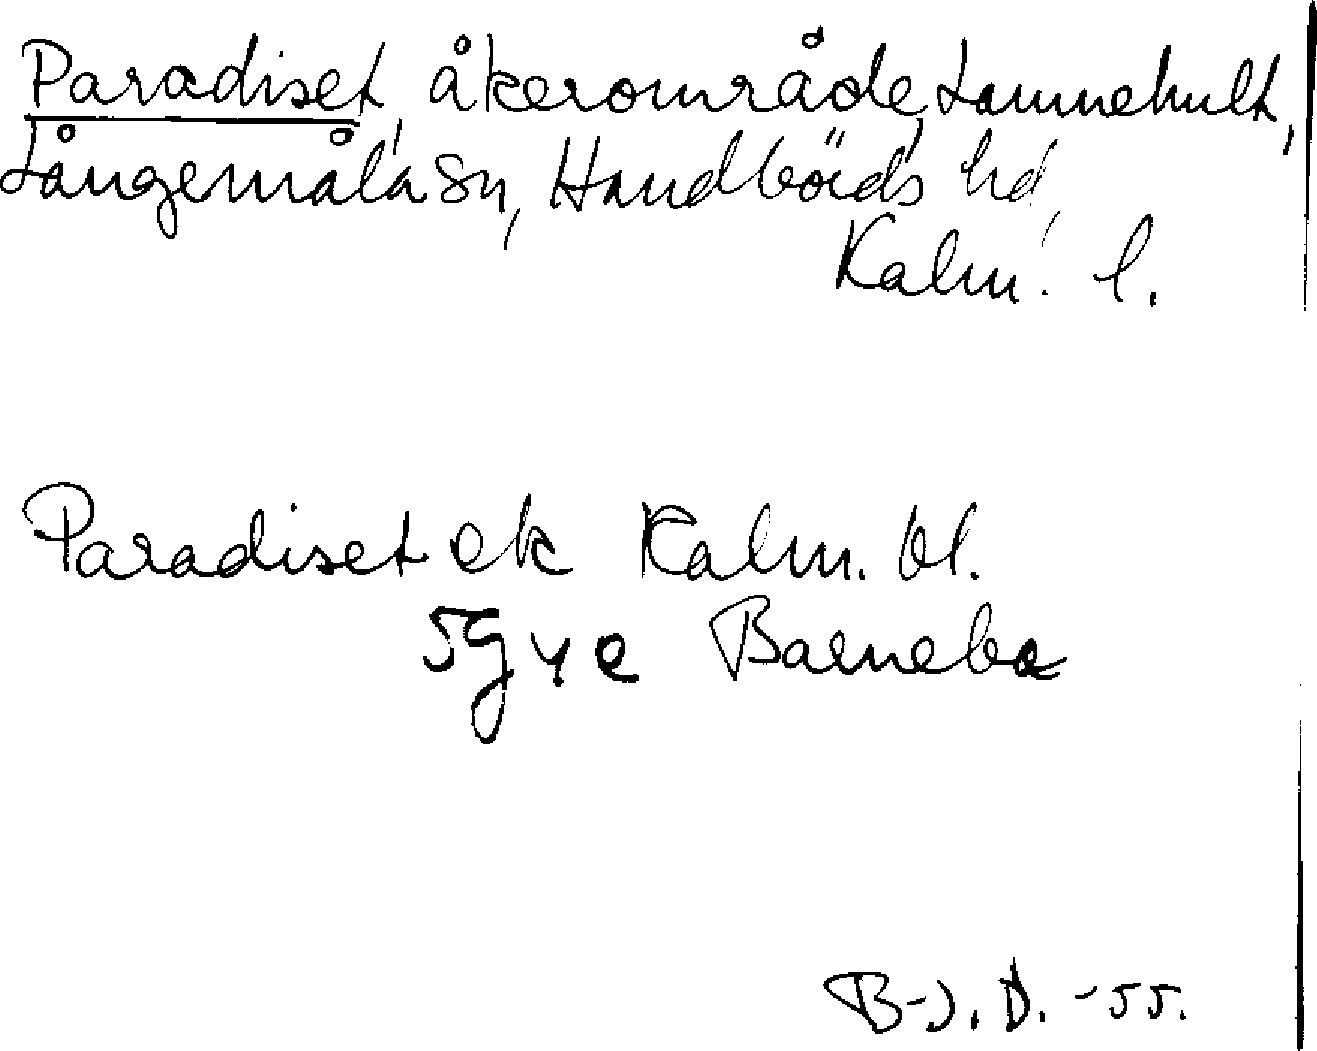 Paradiset, åkerområde, Lammehult,
Långemåla sn, Handbörds hd,
Kalm. l.
Paradiset ek Kalm. bl.
5G 4 e Baeneba
B-J. D. -55.